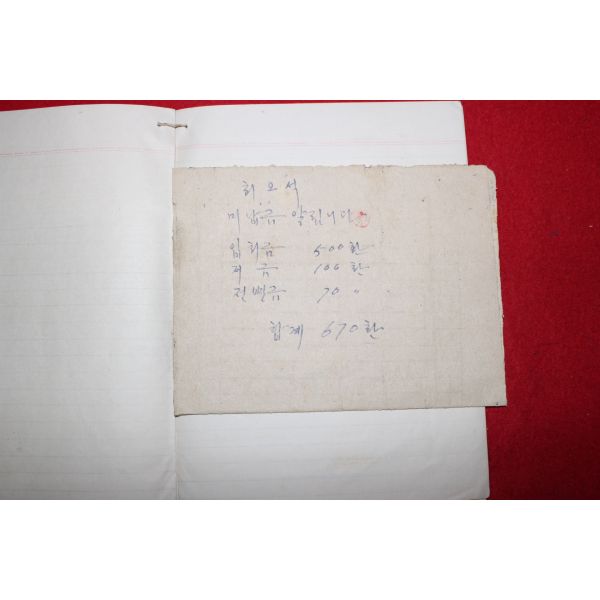 최오석
미납금 알립니다
입회금 500환
저금 100환
전별금 70 〃
합계 670환